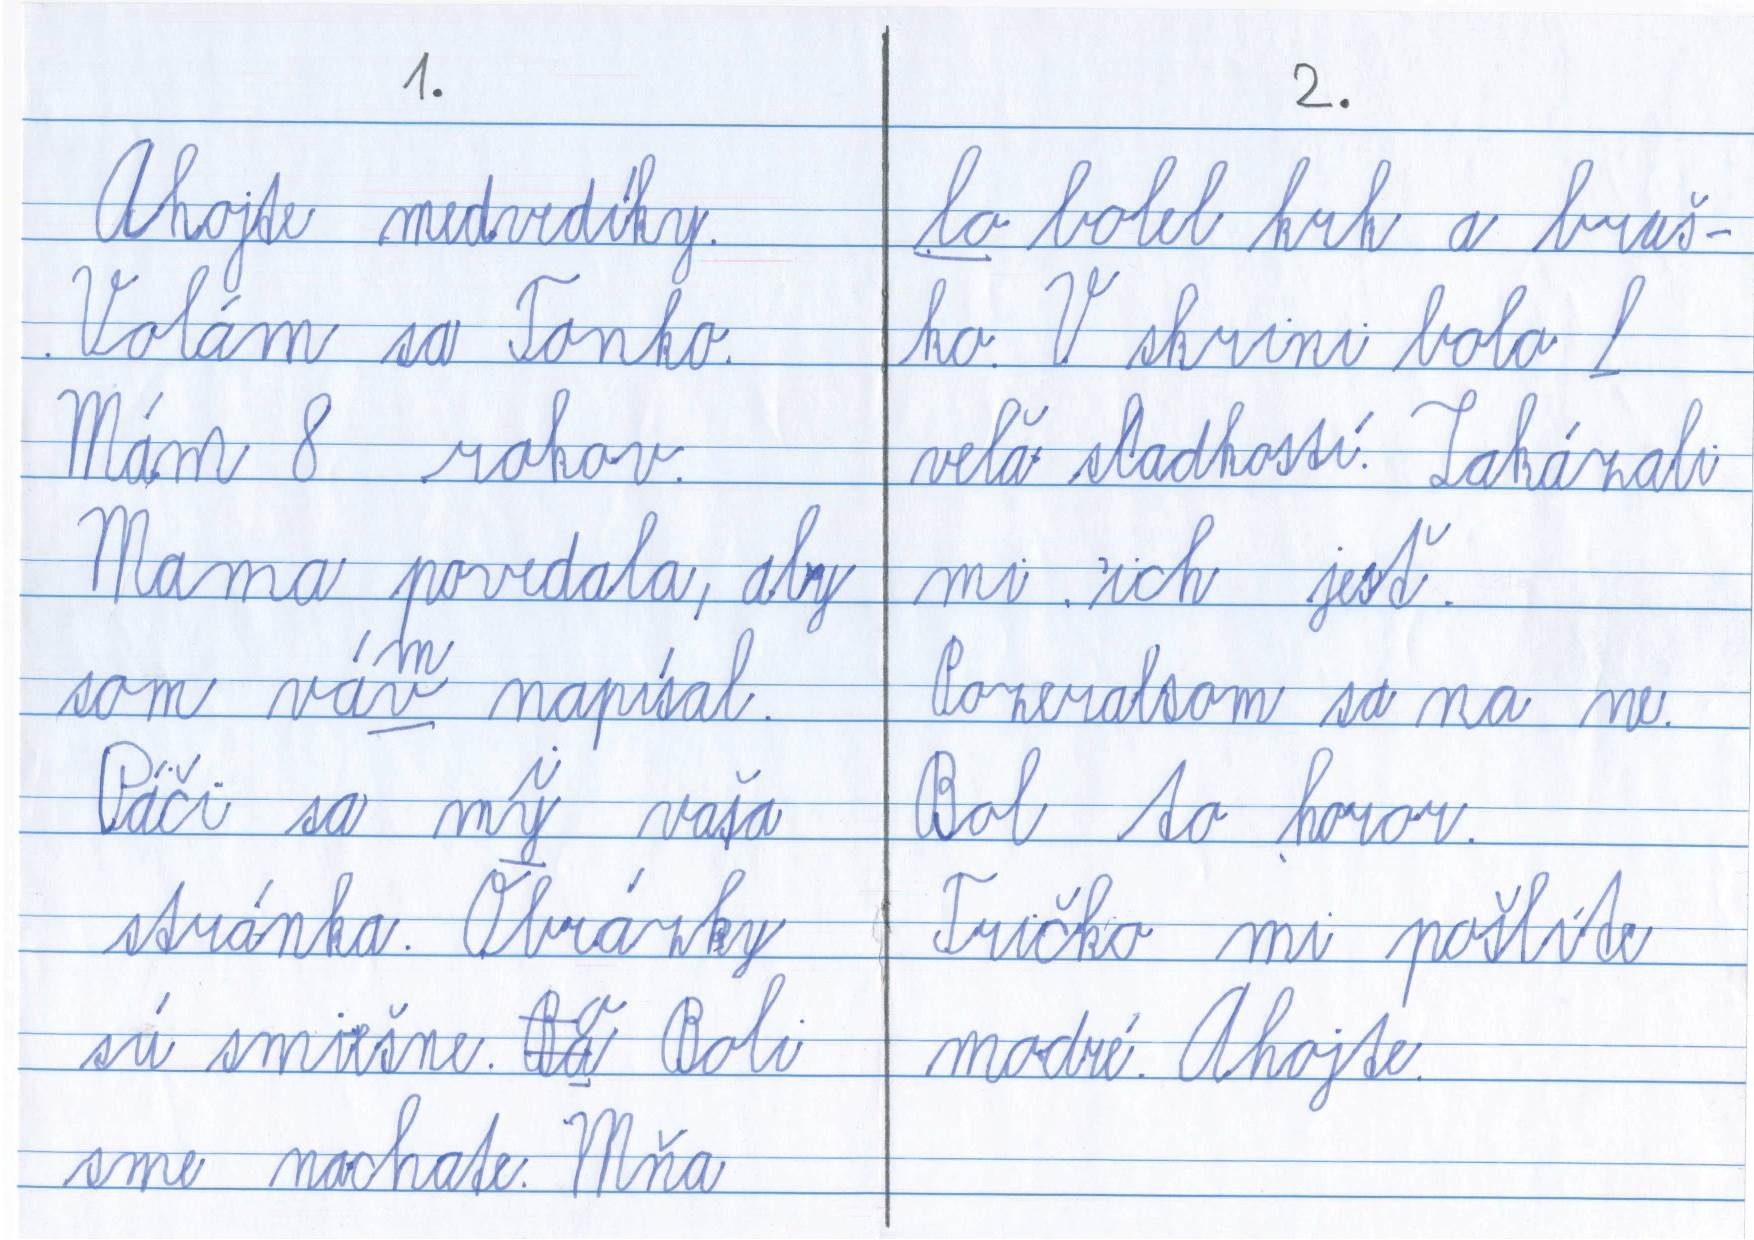 1.
Ahojte medvedíky.
Volám sa Tonko.
Mám 8 rokov.
Mama povedala, aby
som vám napísal.
Páči sa mi vaša
stránka. Obrázky
sú smiešne. Boli
sme nachate. Mňa
2.
lo bolel krk a bruš-
ko. V skrini bola l
vela sladkostí. Zakázali
mi ich jesť.
Pozeralsom sa na ne.
Bol to horor.
Tričko mi pošlite
modré. Ahojte.